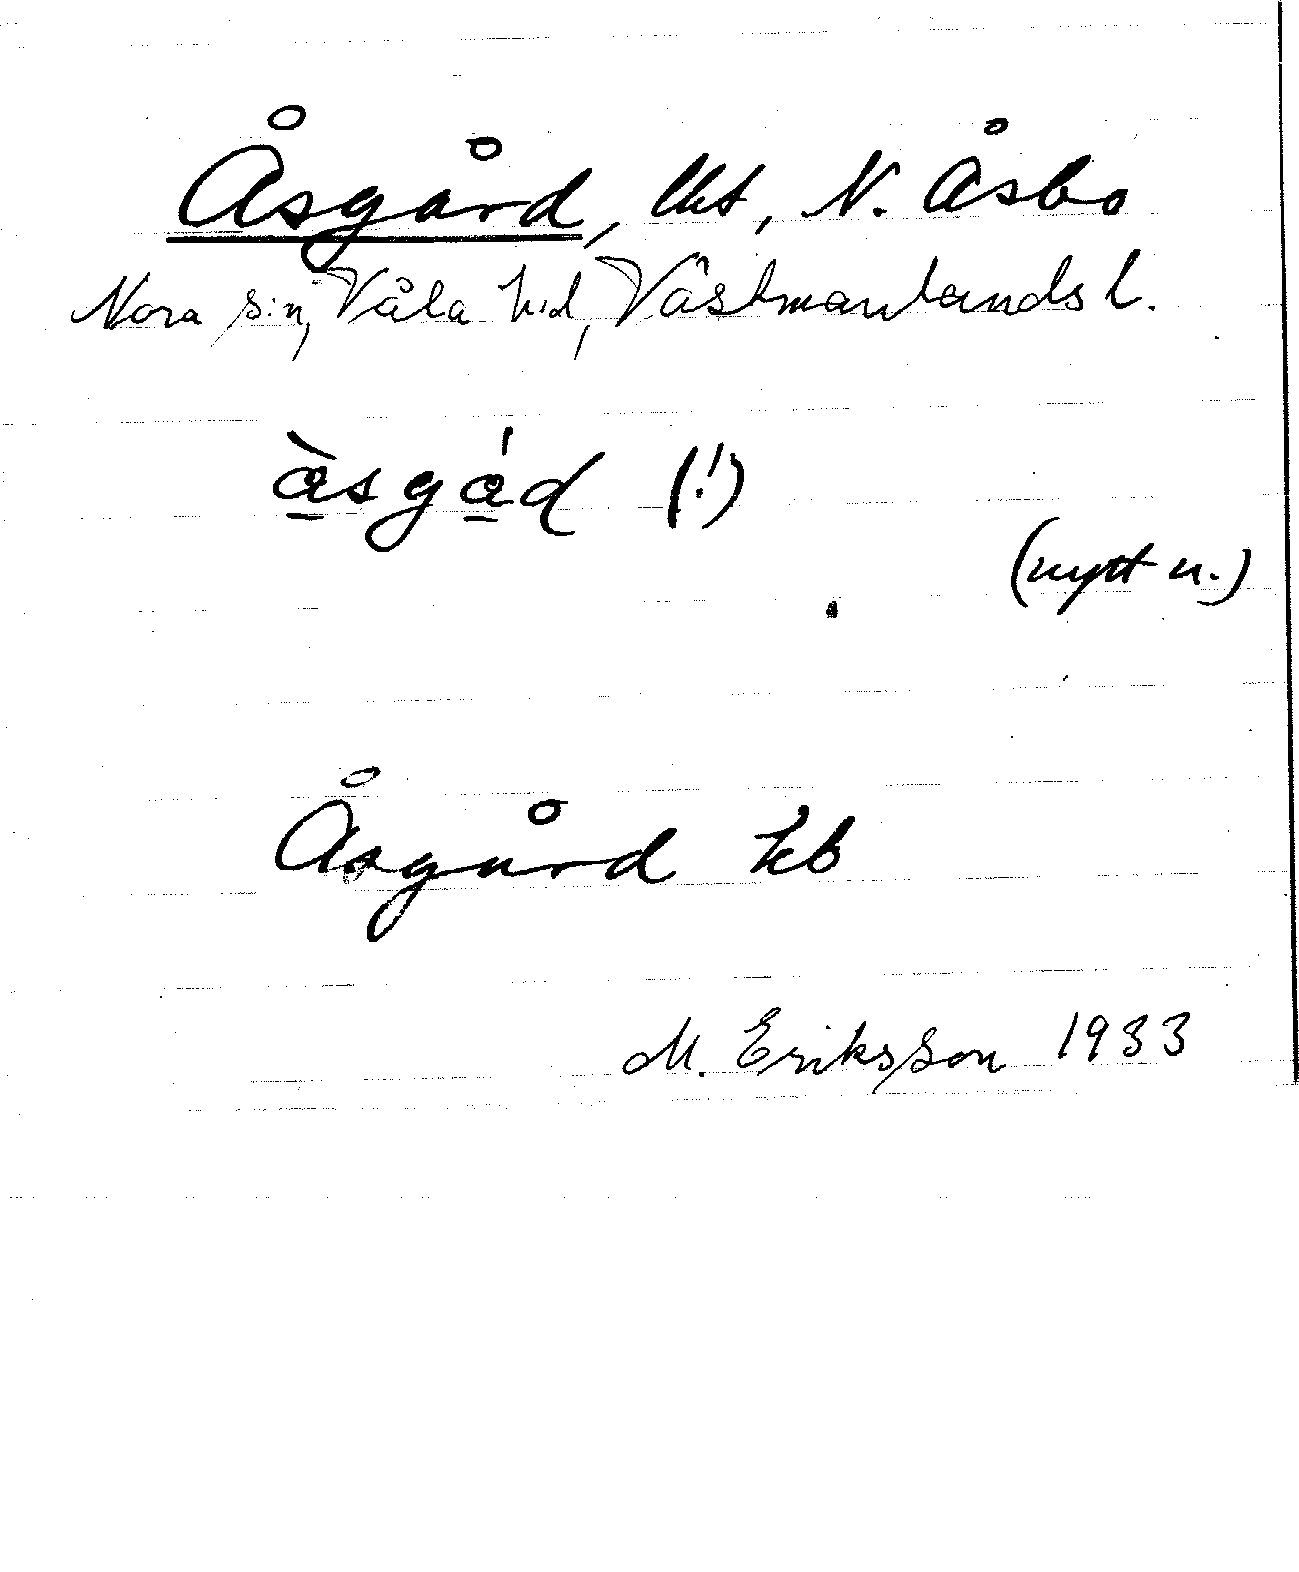 Åsgård, lht, N. Åsbo
Nora s:n, Våla hd, Västmanlands l.
å̱̀sgǻ̱d (!)
(nytt n.)
Åsgård kb
M. Eriksson 1933